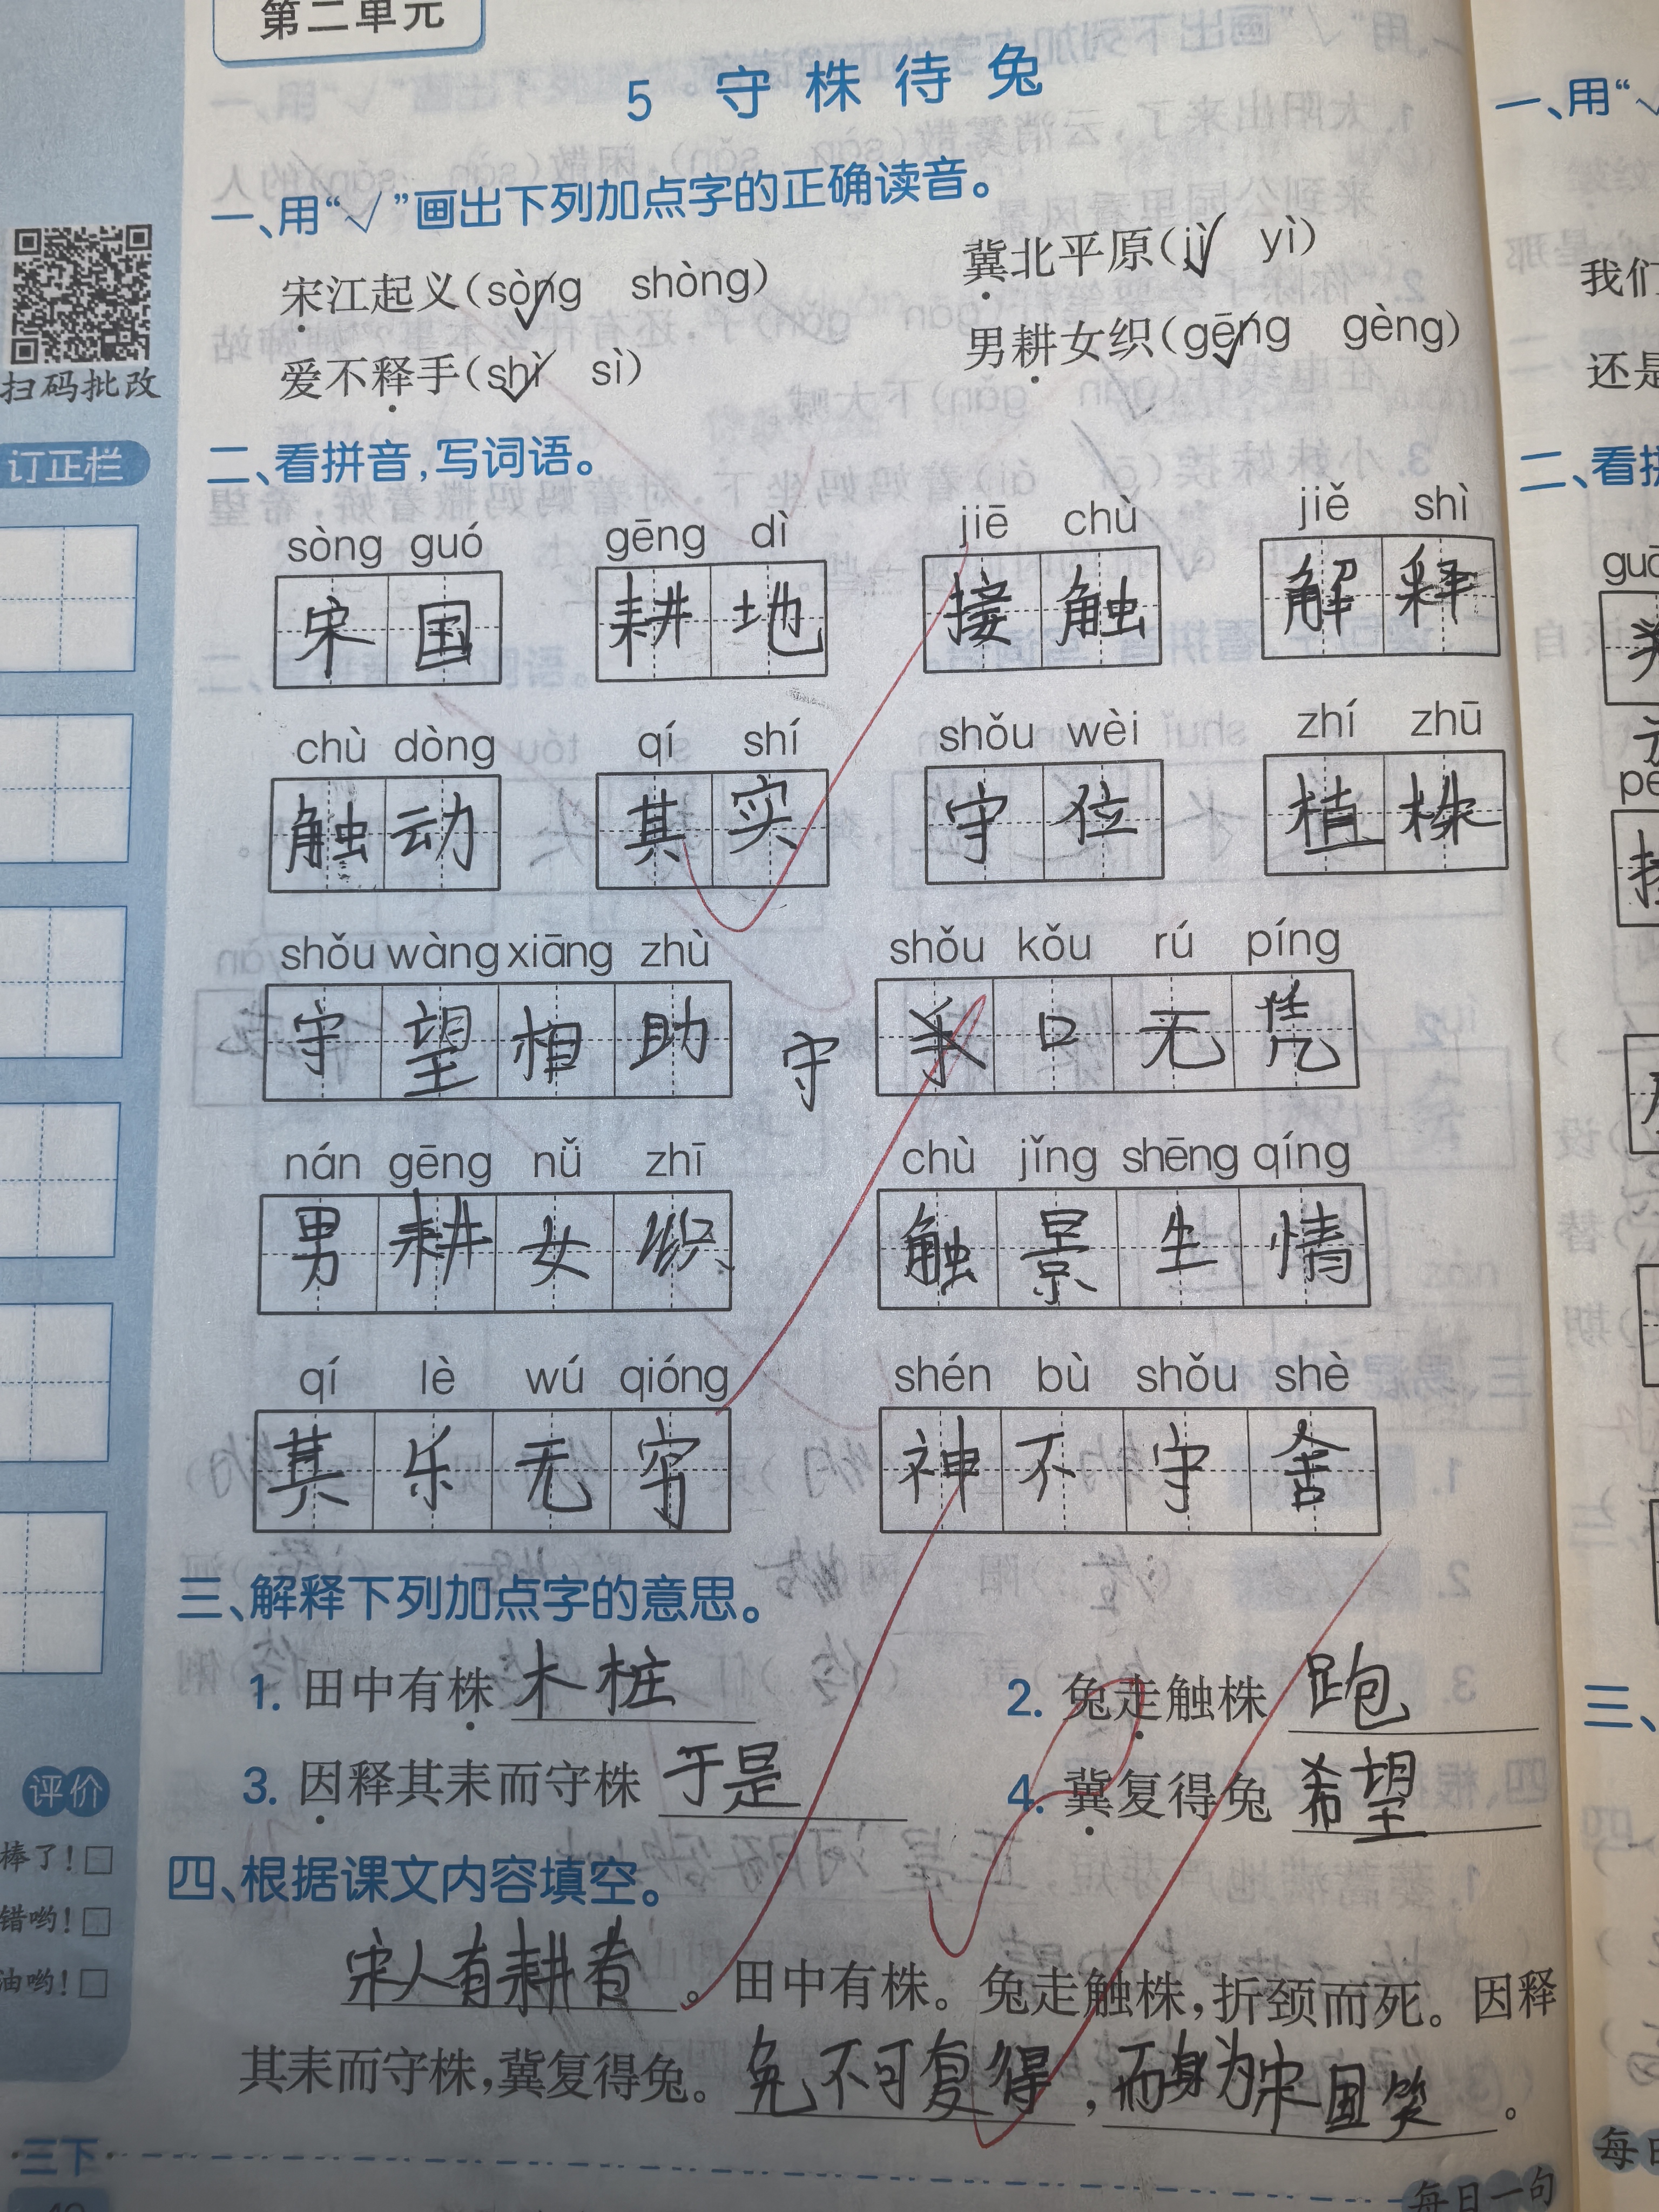 第二单元
5 守株待兔
一、用“√”画出下列加点字的正确读音。
宋江起义(sòng√ shòng) 冀北平原(jì√ yì)
爱不释手(shì√ sì) 男耕女织(gēng√ gèng)
扫码批改
订正栏
二、看拼音,写词语。
sòng guó gēng dì jiē chù jiě shì
宋国 耕地 接触 解释
chù dòng qí shí shǒu wèi zhí zhū
触动 其实 守位 植株
shǒu wàng xiāng zhù shǒu kǒu rú píng
守望相助 守 口无凭
nán gēng nǚ zhī chù jǐng shēng qíng
男耕女织 触景生情
qí lè wú qióng shén bù shǒu shè
其乐无穷 神不守舍
三、解释下列加点字的意思。
1. 田中有株 木桩 2. 兔走触株 跑
3. 因释其耒而守株 于是 4. 冀复得兔 希望
评价
棒了!□
错哟!□
油哟!□
四、根据课文内容填空。
宋人有耕者。田中有株。兔走触株,折颈而死。因释
其耒而守株,冀复得兔。兔不可复得,而身为宋国笑。
三下
每日一句
一、用“√
我们
还是
二、看拼
三、
每日